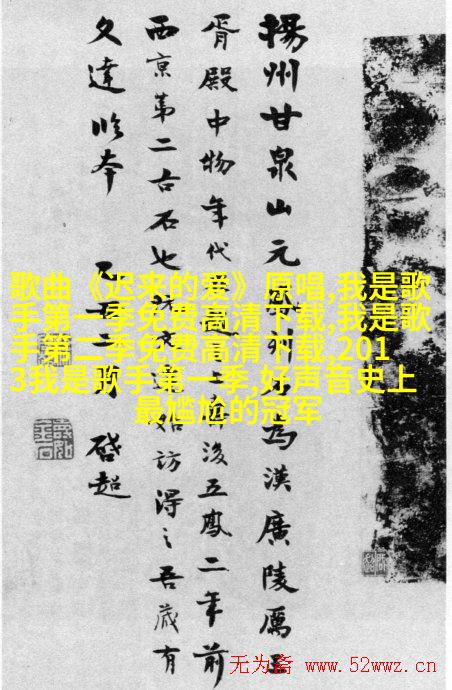 揚州甘泉山元為漢廣陵厲王
胥殿中物年代後五鳳二年前
西京第二古石也始訪得之吾藏有
文達本
啓超
歌曲《迟来的爱》原唱,我是歌
手第一季免费高清下载,我是歌
手第二季免费高清下载,201
3我是歌手第一季,好声音史上
最尴尬的冠军
无为斋 www.52wwz.cn